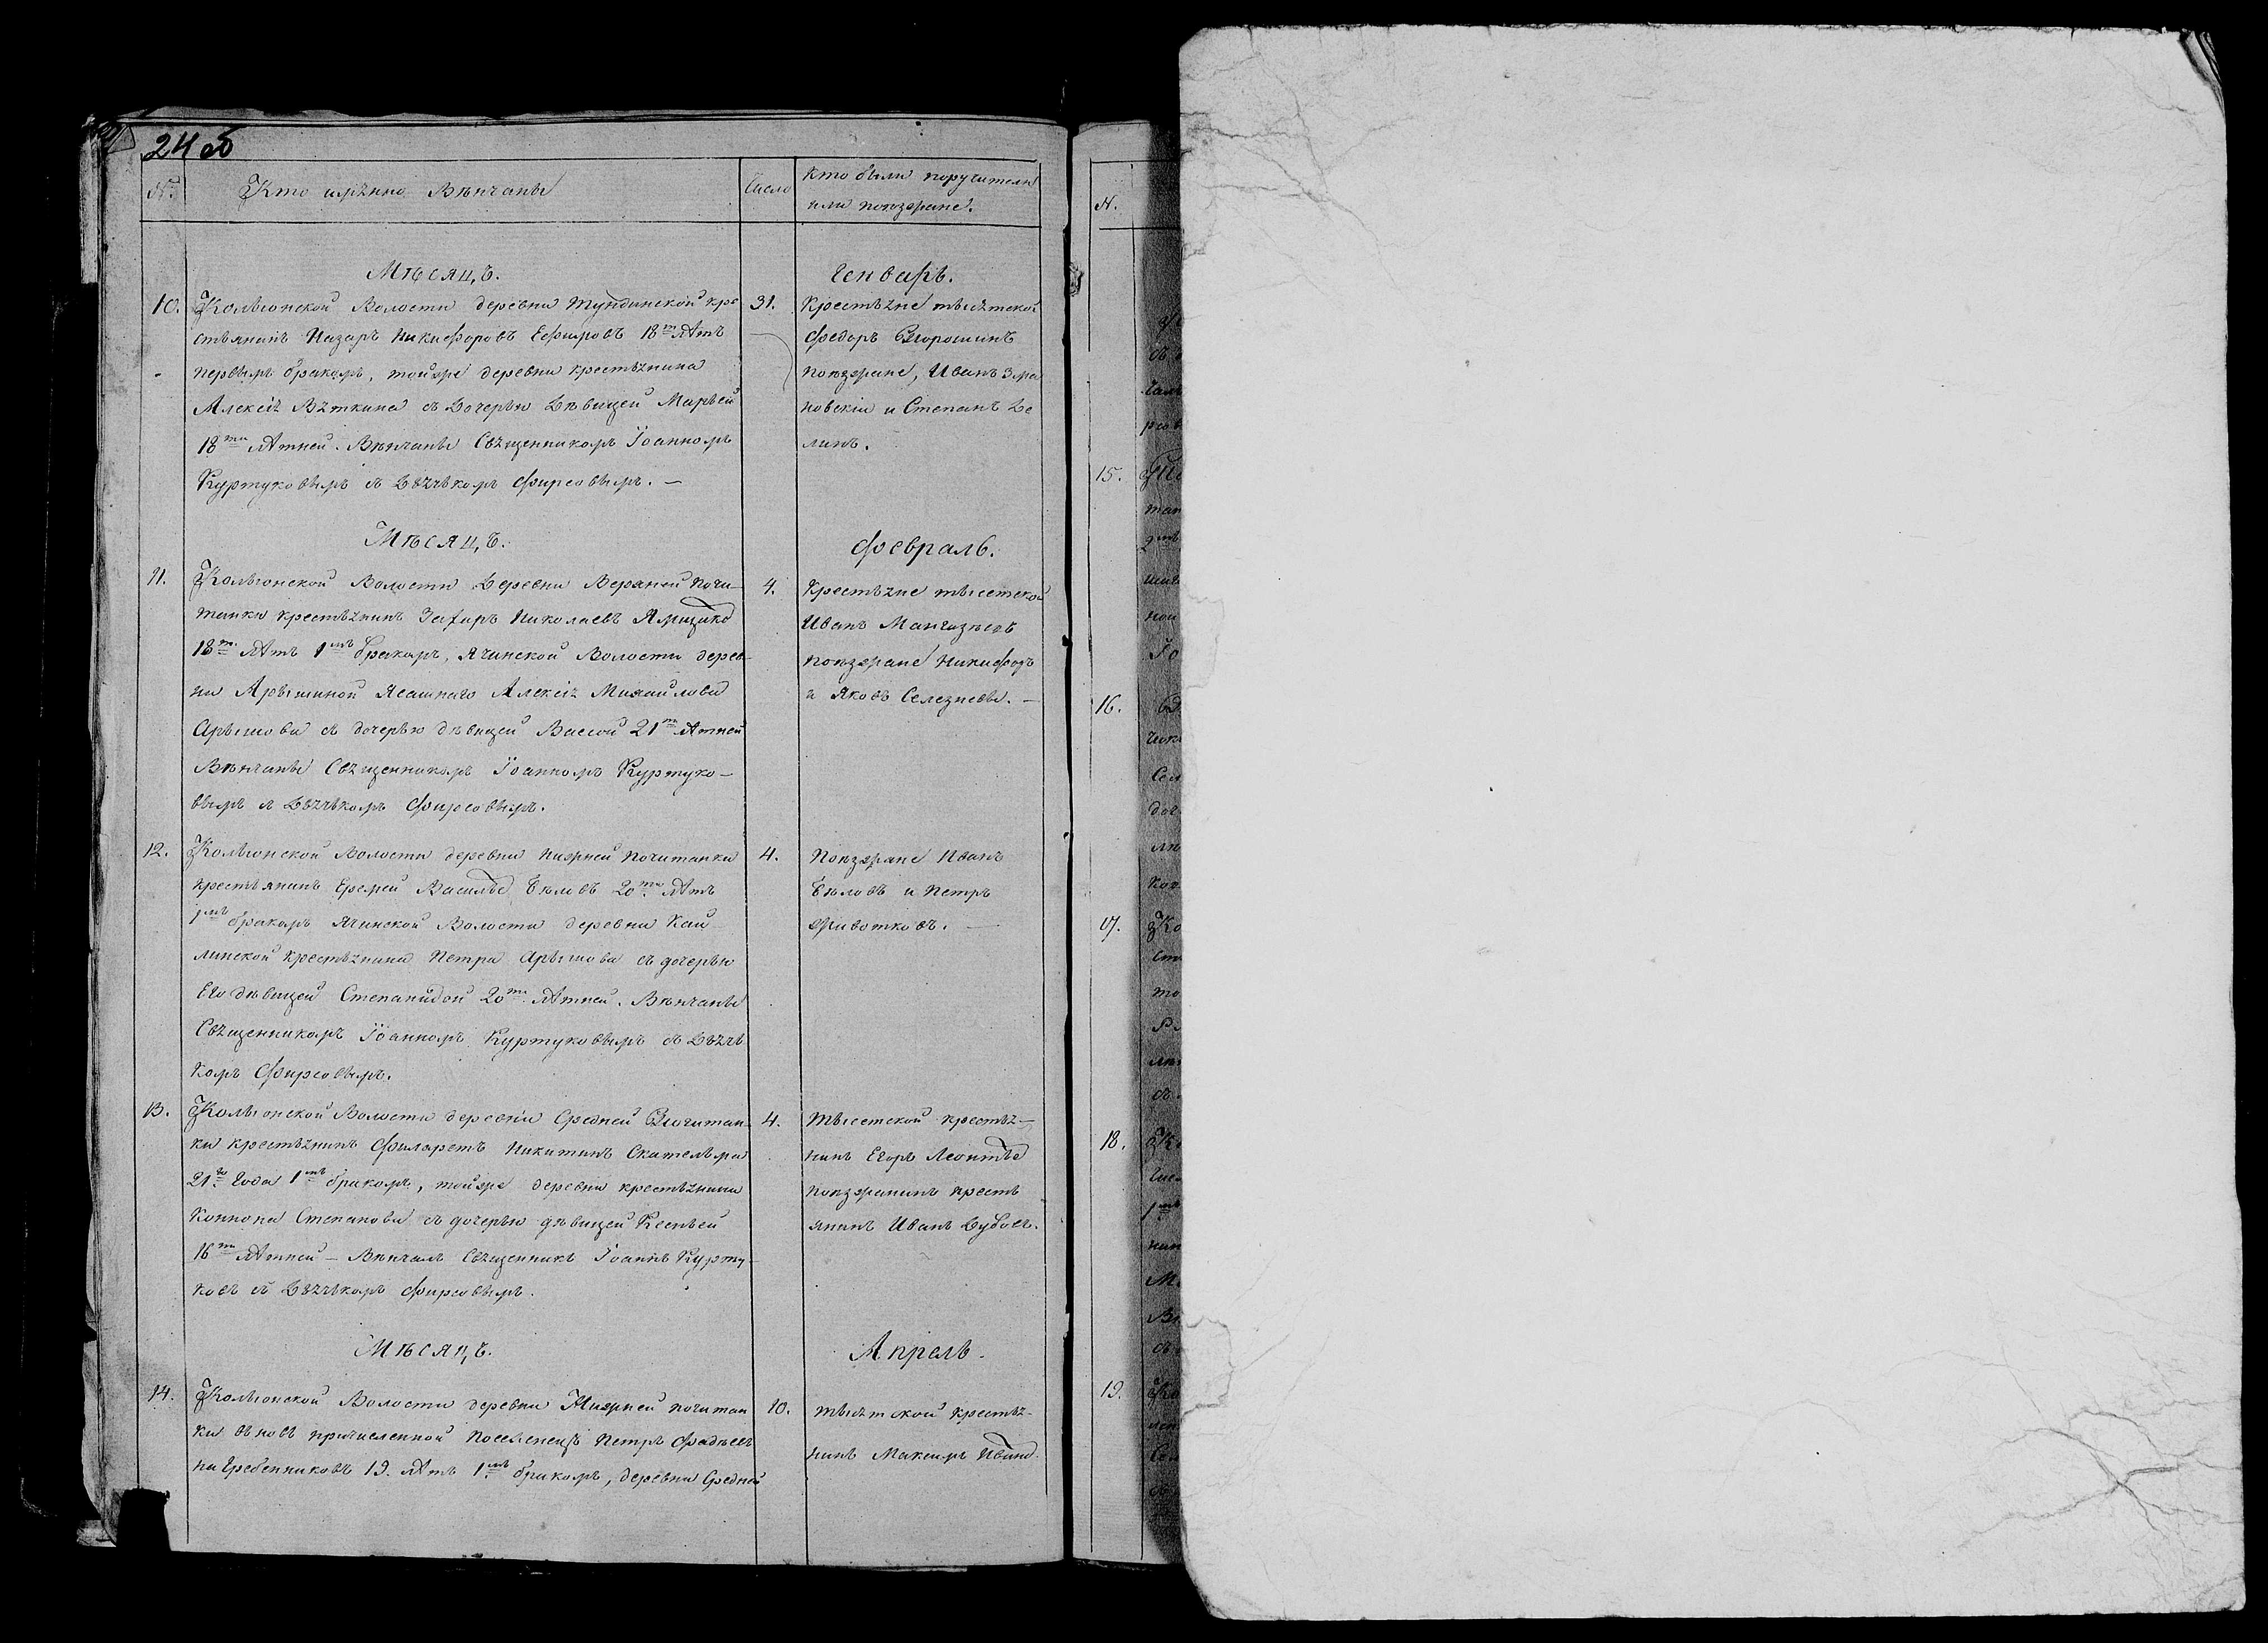 24 об
№. Кто имѣнно Вѣнчаны Число Кто были поручители
или поѣзжане.
Мѣсяцъ. Генварь.
10. Колыонской Волости деревни Тундинской кре
стьянинъ Назаръ Никифоровъ Ефимовъ 18ти лѣтъ
первымъ бракомъ, тойже деревни крестьянина
Алексѣя Вяткина съ дочерью дѣвицей Марьей
18ти лѣтней. Вѣнчаны Священникомъ Іоанномъ
Куртуковымъ съ дьячькомъ Фирсовымъ. —
31. Крестьяне тысяцкой
Федоръ
поѣзжане, Иванъ Зма
новскіи и Степанъ Бе
линъ.
Мѣсяцъ. Февраль.
11. Колыонской Волости деревни Верхней Почи-
танки крестьянинъ Захаръ Николаевъ
18ти лѣтъ 1мъ бракомъ, Ячинской Волости дерев-
ни Арышиной Ясашнаго Алексѣя Михайлова
Арышова съ дочерью дѣвицей Вассой 21ти лѣтней
Вѣнчаны Священникомъ Іоанномъ Куртуко-
вымъ и дьячькомъ Фирсовымъ.
4. Крестьяне тысетской
Иванъ
поѣзжане Никифоръ
и Яковъ Селезневы. —
12. Колыонской Волости деревни Нижней Почитанки
крестьянинъ Еремей Бѣловъ 20ти лѣтъ
1мъ бракомъ Ячинской Волости деревни Кай
линской крестьянина Петра Арышова съ дочерью
Его дѣвицей Степанидой 20ти лѣтней. Вѣнчаны
Священникомъ Іоанномъ Куртуковымъ съ дьячь
комъ Фирсовымъ.
4. Поѣзжане Иванъ
Бѣловъ и Петръ
Животковъ. —
13. Колыонской Волости деревни Средней Почитан-
ки крестьянинъ Филаретъ Никитинъ
21го года 1мъ бракомъ, тойже деревни крестьянина
Конона Степанова съ дочерью дѣвицей Ксеньей
16ти лѣтней — Вѣнчалъ Священникъ Іоаннъ Курту-
ковъ съ дьячькомъ Фирсовымъ.
4. Тысетской крестья-
нинъ Егоръ Леонтье
поѣзжанинъ кресть
янинъ Иванъ
Мѣсяцъ. Апрель.
14. Колыонской Волости деревни Нижней Почитан
ки вновь причисленной поселенецъ Петръ Фадѣевъ
Гребенниковъ 19. лѣтъ 1мъ бракомъ, деревни Средней
10. тысяцкой крестья-
нинъ Максимъ Ивано
N.
15.
16.
17.
18.
19.